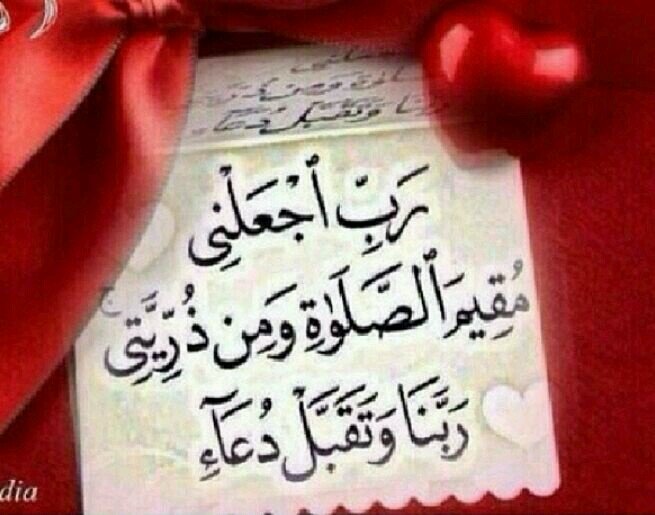 رَبِّ ٱجْعَلْنِى
مُقِيمَ ٱلصَّلَوٰةِ وَمِن ذُرِّيَّتِى ۚ
رَبَّنَا وَتَقَبَّلْ دُعَآءِ
dia